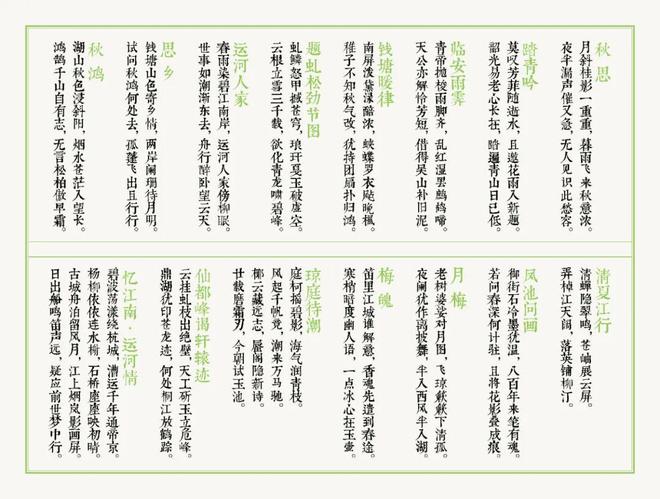 秋思
月斜桂影一重重，暮雨飞来秋意浓。
夜半漏声催又急，无人见识此愁容。
踏青吟
莫叹芳菲随逝水，且邀花雨入新题。
韶光易老心长在，踏遍青山日已低。
临安雨霁
青帝抛梭雨脚齐，乱红湿翠鹧鸪啼。
天公亦解怜芳短，借得吴山补旧泥。
钱塘暖律
南屏泼黛渌醅浓，蛱蝶罗衣飐晚枫。
稚子不知秋气改，犹持团扇扑归鸿。
题虬松劲节图
虬鳞怒甲撼苍穹，琅玕戛玉破虚空。
云根立雪三千载，欲化青龙啸碧峰。
运河人家
春雨染碧江南岸，运河人家傍柳眠。
世事如潮渐东去，舟行醉卧望云天。
思乡
钱塘山色寄乡情，两岸阑珊待月明。
试问秋鸿何处去，孤蓬飞出且行行。
秋鸿
湖山秋色浸斜阳，烟水苍茫入望长。
鸿鹄千山自有志，无言松柏傲早霜。
清夏江行
清蝉隐翠鸣，苍岫展云屏。
弄棹江天阔，落英铺柳汀。
凤池问画
御街石冷墨犹温，八百年来笔有魂。
若问春深何计驻，且将花影叠成痕。
月梅
老树婆娑对月图，飞琼簌簌下清孤。
夜阑犹作离披舞，半入西风半入湖。
梅魄
笛里江城谁解意，香魂先遣到春途。
寒梢暗度幽人语，一点冰心在玉壶。
琼庭待潮
庭柯摇碧影，海气润青枝。
风起千帆竞，潮来万马驰。
椰云藏远志，蜃阁隐新诗。
廿载磨霜刃，今朝试玉池。
仙都峰谒轩辕迹
云挂虬枝出绝壁，天工斫玉立危峰。
鼎湖犹印苍龙迹，何处桐江放鹤踪。
忆江南·运河情
碧波荡漾绕杭城，漕运千年通帝京。
杨柳依依连水榭，石桥座座映初晴。
古城舟泊留风月，江上烟岚影画屏。
日出船鸣笛声远，疑应前世梦中行。